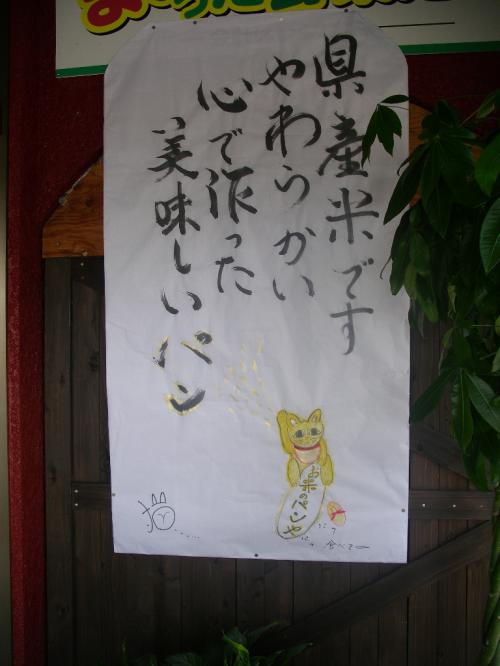 県産米です
やわらかい
心で作った
美味しいパン
お米のパンや
食べてー